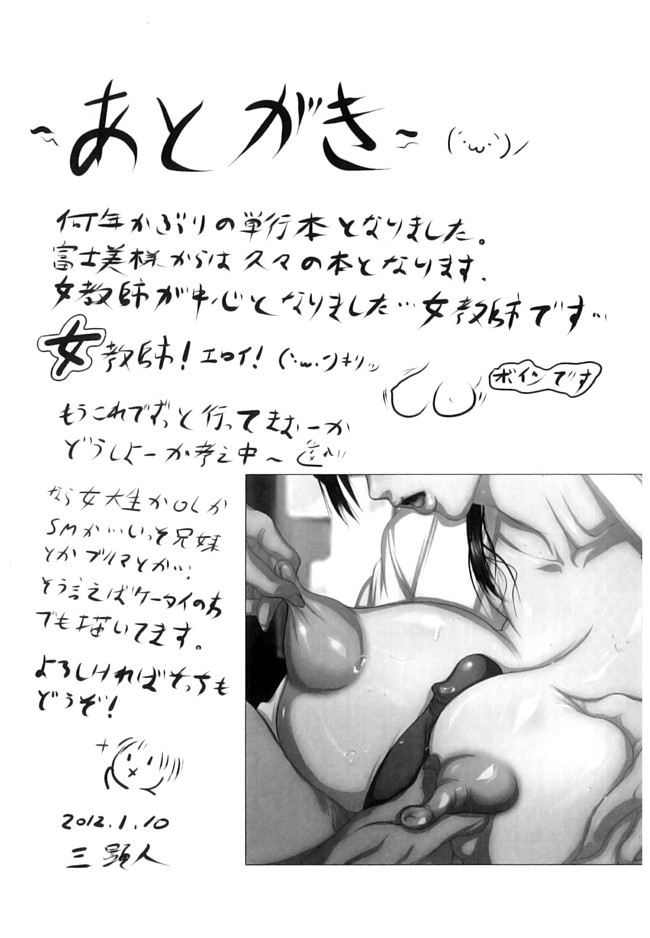 ~あとがき~ (´･ω･`)ノ
何年かぶりの単行本となりました。
富士美様からは久々の本となります.
女教師が中心となりました…女教師です…
女教師! エロイ! (`･ω･´)キリッ
ボインです
もうこれでずっと行ってきむーか
どうしよーか考え中~
女大生かOLか
SMか…いっそ兄妹
とかブルマとか…!
そう言えばケータイのも
でも描いてます。
よろしければそっちも
どうぞ!
2012.1.10
三顕人